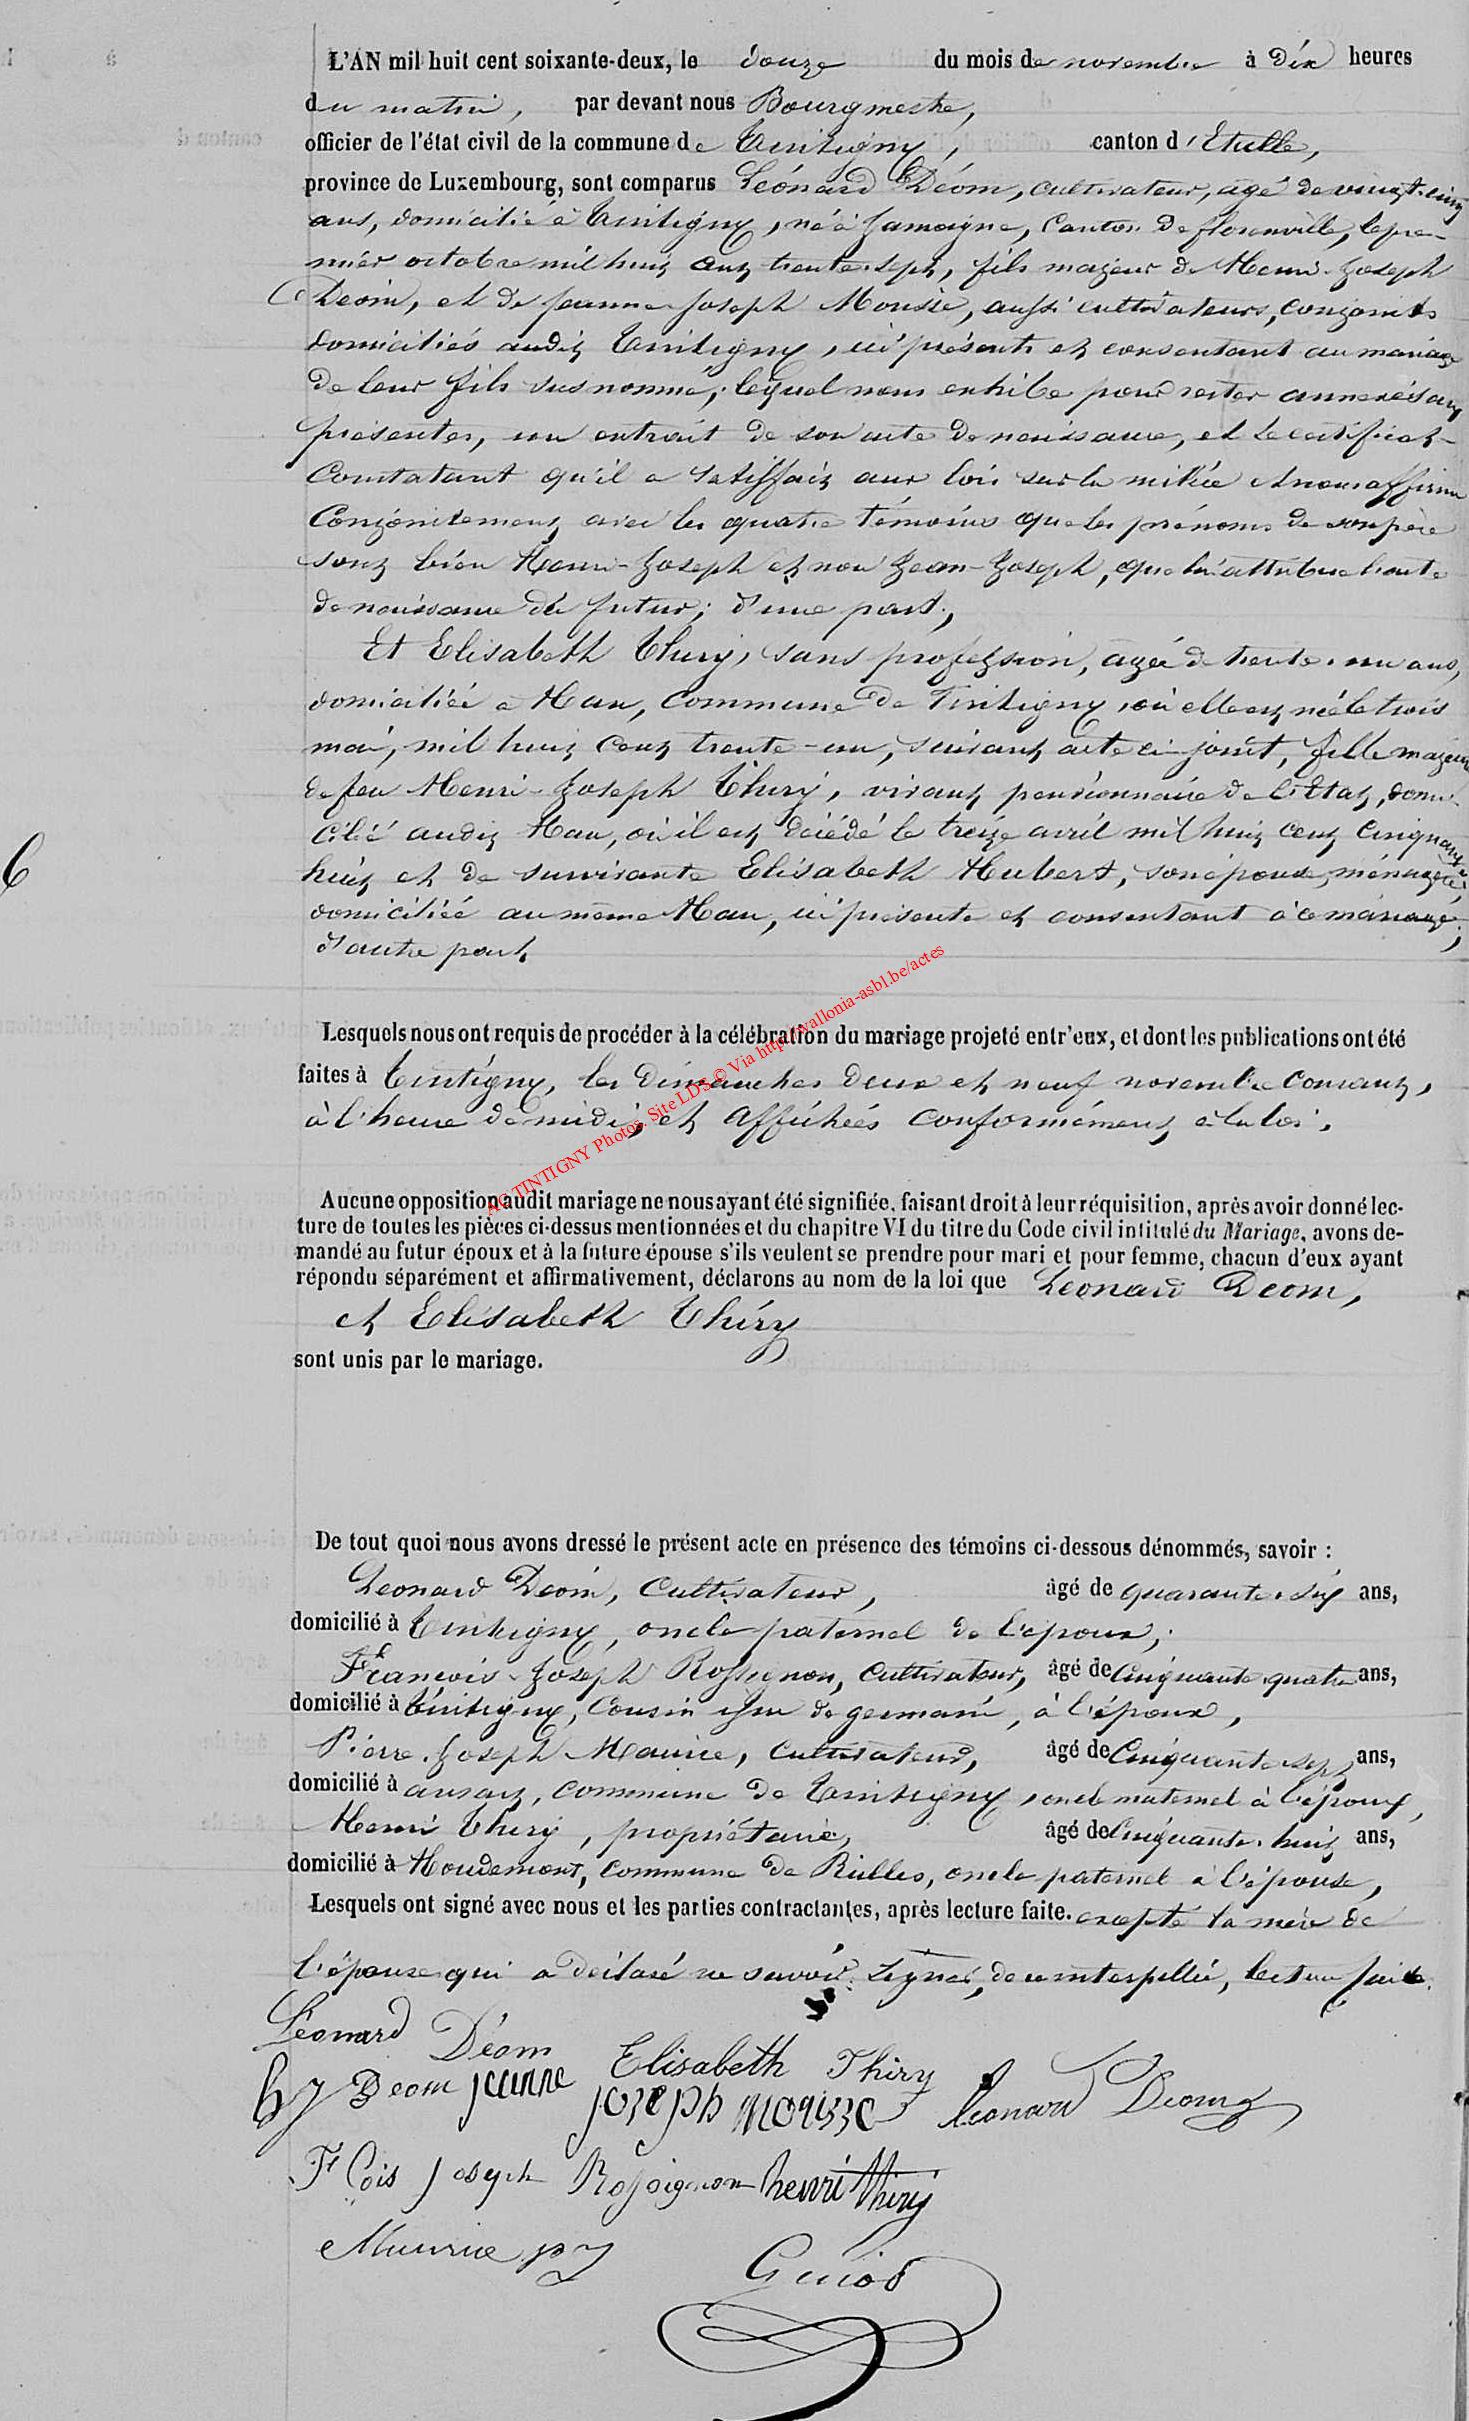 L'AN mil huit cent soixante-deux, le douze du mois de novembre à Dix heures
du matin, par devant nous Bourgmestre,
officier de l'état civil de la commune de Tintigny, canton d'Etalle,
province de Luxembourg, sont comparus Léonard Déom, cultivateur, âgé de vingt-cinq
ans, domicilié à Tintigny, né à Jamoigne, Canton de florenville, le pre-
mier octobre mil huit cent trente-sept, fils majeur de Henri-Joseph
Deom, et de Jeanne-Joseph Mousié, aussi cultivateurs, conjoints
domiciliés audit Tintigny, ici présents et consentant au mariage
de leur fils susnommé; lequel nous exhibe pour rester annexés aux
présentes, un extrait de son acte de naissance, et le certificat
Constatant qu'il a satisfait aux lois sur la milice et nous affirme
Conjointement avec les quatre témoins que les prénoms de son père
sont bien Henri-Joseph et non Jean-Joseph, que lui attribue l'acte
de naissance du futur; d'une part;,
Et Elisabeth Thiry, sans profession, agée de trente-un ans,
domiciliée à Han, commune de Tintigny, où elle est née le trois
mai, mil huit cent trente-un, suivant acte ci-joint, fille majeure
de feu Henri-Joseph Thiry, vivant pensionnaire de l'Etat, domi-
cilié audit Han, où il est décédé le treize avril mil huit cent cinquante
huit et de survivante Elisabeth Hubert, son épouse, ménagère,
domiciliée au même Han, ici présente et consentant à ce mariage;
d'autre part.
Lesquels nous ont requis de procéder à la célébration du mariage projeté entr'eux, et dont les publications ont été
faites à Tintigny, les Dimanches deux et neuf novembre Courant,
à l'heure de midi, et affichées conformément à la loi.
AC TINTIGNY Photos. Site LDS © Via http://wallonia-asbl.be/actes
Aucune opposition audit mariage ne nous ayant été signifiée, faisant droit à leur réquisition, après avoir donné lec-
ture de toutes les pièces ci-dessus mentionnées et du chapitre VI du titre du Code civil intitulé du Mariage, avons de-
mandé au futur époux et à la future épouse s'ils veulent se prendre pour mari et pour femme, chacun d'eux ayant
répondu séparément et affirmativement, déclarons au nom de la loi que Léonard Deom,
et Elisabeth Thiry
sont unis par le mariage.
6
De tout quoi nous avons dressé le présent acte en présence des témoins ci-dessous dénommés, savoir :
Léonard Deom, Cultivateur, âgé de quarante-six ans,
domicilié à Tintigny, oncle paternel de l'époux;
François-Joseph Rossignon, Cultivateur, âgé de Cinquante-quatre ans,
domicilié à Tintigny, Cousin issu de germain, à l'époux,
Pierre-Joseph Maurice, Cultivateur, âgé de Cinquante-sept ans,
domicilié à ansart, commune de Tintigny, oncle maternel à l'épouse,
Henri Thiry, propriétaire, âgé de Cinquante-huit ans,
domicilié à Houdemont, commune de Rulles, oncle paternel à l'épouse,
Lesquels ont signé avec nous et les parties contractantes, après lecture faite. excepté la mère de
l'épouse qui a déclaré ne savoir signer, de ce interpellée, lecture faite.
Léonard Déom Elisabeth Thiry
hj Deom jeanne joseph mousse Léonard Deom
Fçois joseph Rossignon henri thiry
Maurice pj
Guiot